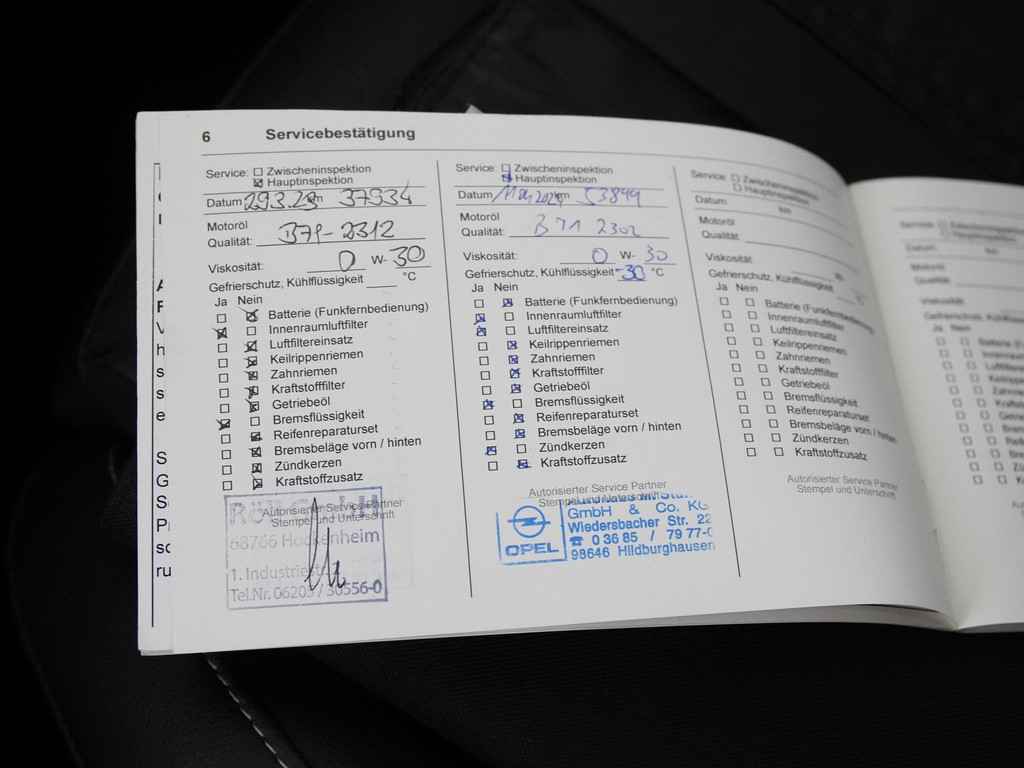 6 Servicebestätigung
Service: ☐ Zwischeninspektion
☒ Hauptinspektion
Datum 29.3.23 km 37934
Motoröl
Qualität: B71-2312
Viskosität: 0 W- 30
Gefrierschutz, Kühlflüssigkeit °C
Ja Nein
☐ ☒ Batterie (Funkfernbedienung)
☒ ☐ Innenraumluftfilter
☐ ☒ Luftfiltereinsatz
☐ ☒ Keilrippenriemen
☐ ☒ Zahnriemen
☐ ☒ Kraftstofffilter
☐ ☒ Getriebeöl
☒ ☐ Bremsflüssigkeit
☐ ☒ Reifenreparaturset
☐ ☒ Bremsbeläge vorn / hinten
☐ ☒ Zündkerzen
☐ ☒ Kraftstoffzusatz
Autorisierter Service Partner
Stempel und Unterschrift
68766 Hockenheim
1. Industriest
Tel.Nr. 06205 / 30556-0
Service: ☐ Zwischeninspektion
☒ Hauptinspektion
Datum km 53899
Motoröl
Qualität: B71 2302
Viskosität: 0 W- 30
Gefrierschutz, Kühlflüssigkeit -30 °C
Ja Nein
☐ ☒ Batterie (Funkfernbedienung)
☒ ☐ Innenraumluftfilter
☒ ☐ Luftfiltereinsatz
☐ ☒ Keilrippenriemen
☐ ☒ Zahnriemen
☐ ☒ Kraftstofffilter
☐ ☒ Getriebeöl
☒ ☐ Bremsflüssigkeit
☐ ☒ Reifenreparaturset
☐ ☒ Bremsbeläge vorn / hinten
☒ ☐ Zündkerzen
☐ ☒ Kraftstoffzusatz
Autorisierter Service Partner
Stempel und Unterschrift
OPEL
GmbH & Co. KG
Wiedersbacher Str. 22
☎ 0 36 85 / 79 77-0
98646 Hildburghausen
Service: ☐ Zwischeninspektion
☐ Hauptinspektion
Datum km
Motoröl
Qualität:
Viskosität: W-
Gefrierschutz, Kühlflüssigkeit °C
Ja Nein
☐ ☐ Batterie (Funkfernbedienung)
☐ ☐ Innenraumluftfilter
☐ ☐ Luftfiltereinsatz
☐ ☐ Keilrippenriemen
☐ ☐ Zahnriemen
☐ ☐ Kraftstofffilter
☐ ☐ Getriebeöl
☐ ☐ Bremsflüssigkeit
☐ ☐ Reifenreparaturset
☐ ☐ Bremsbeläge vorn / hinten
☐ ☐ Zündkerzen
☐ ☐ Kraftstoffzusatz
Autorisierter Service Partner
Stempel und Unterschrift